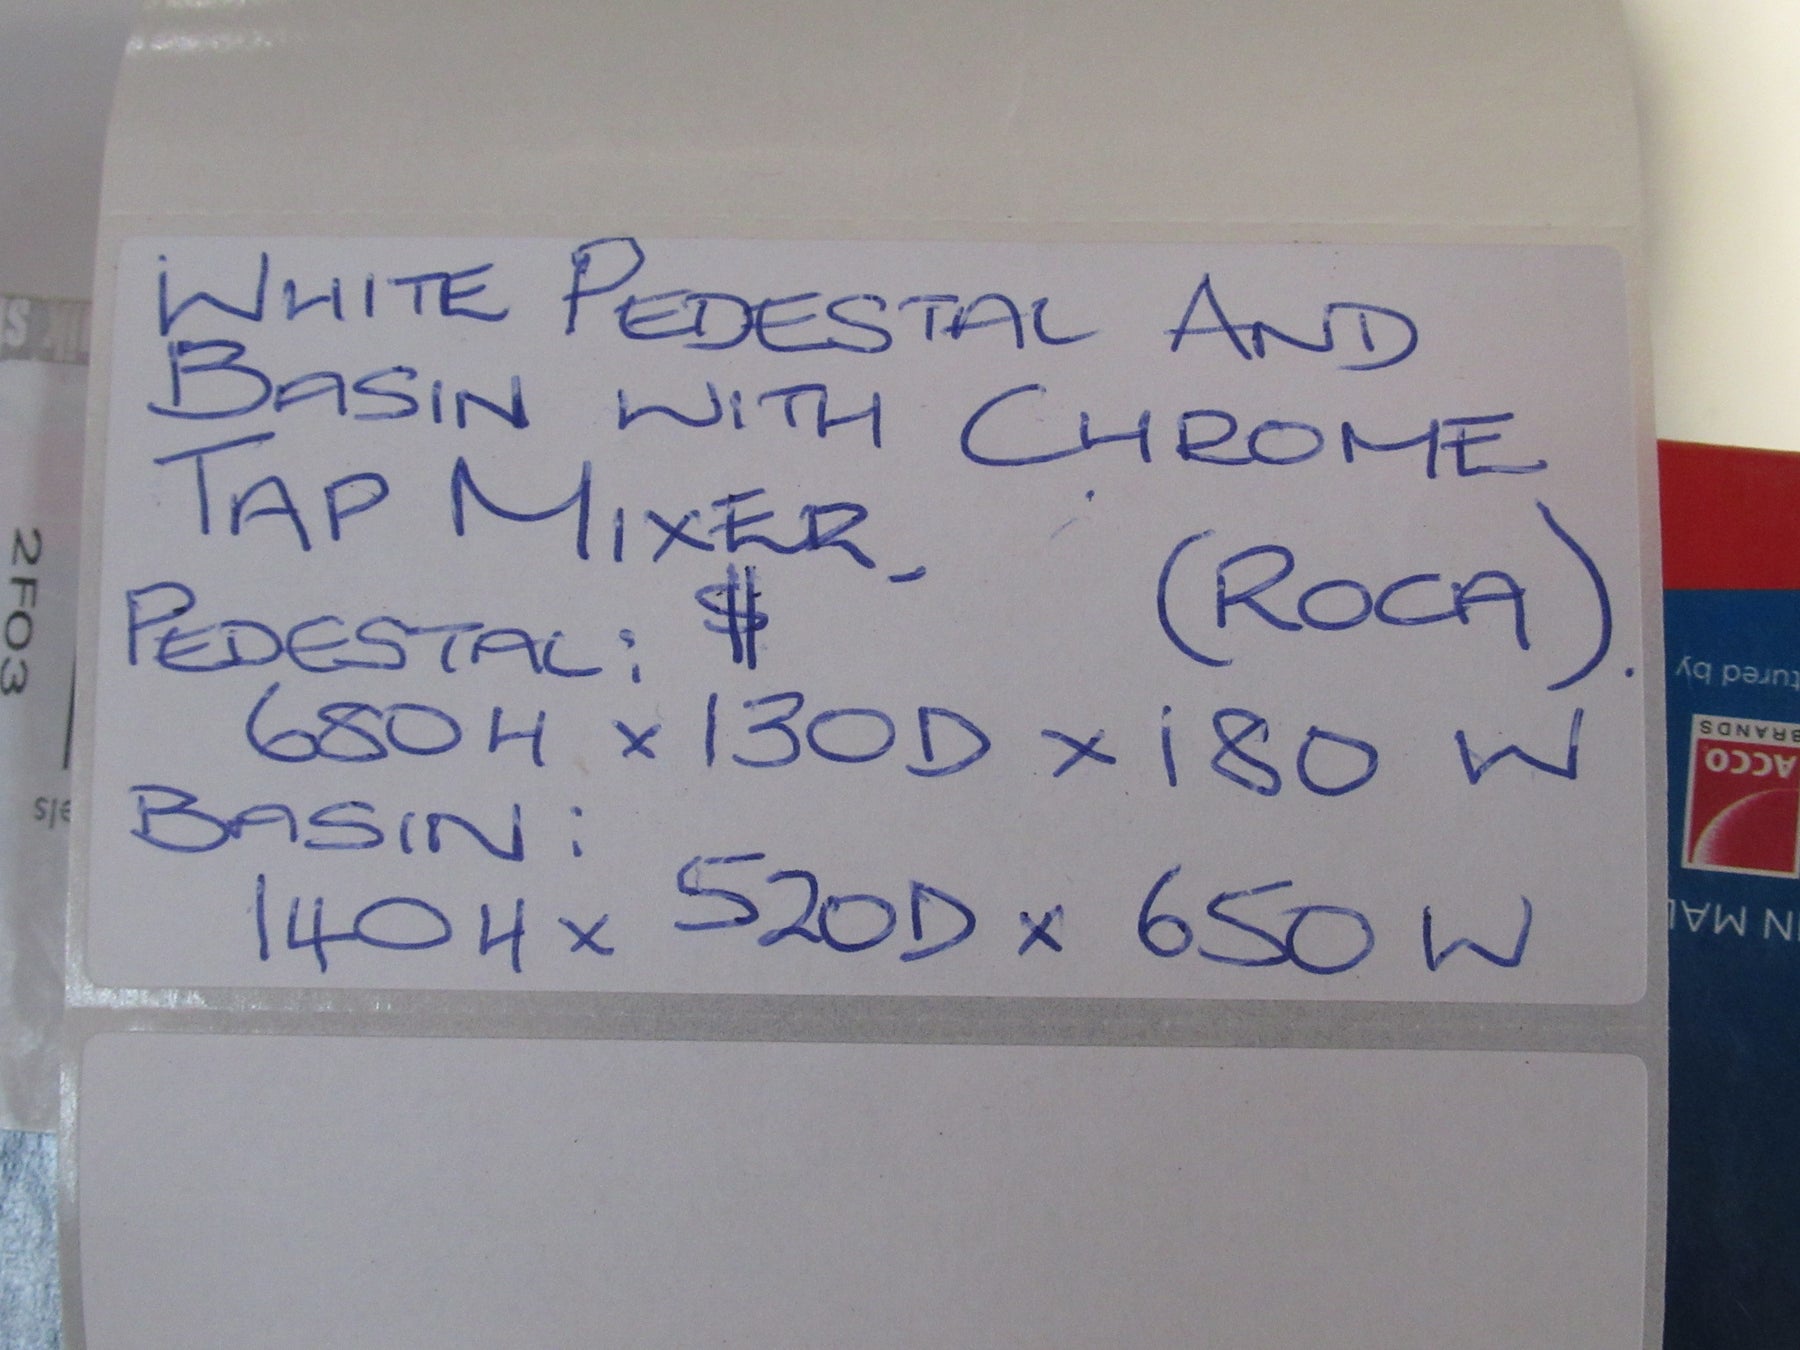 WHITE PEDESTAL AND
BASIN WITH CHROME
TAP MIXER.
(ROCA).
PEDESTAL:
680 H x 130 D x 180 W
BASIN:
140 H x 520 D x 650 W
2F03
els
tured by
ACCO
BRANDS
IN MAL